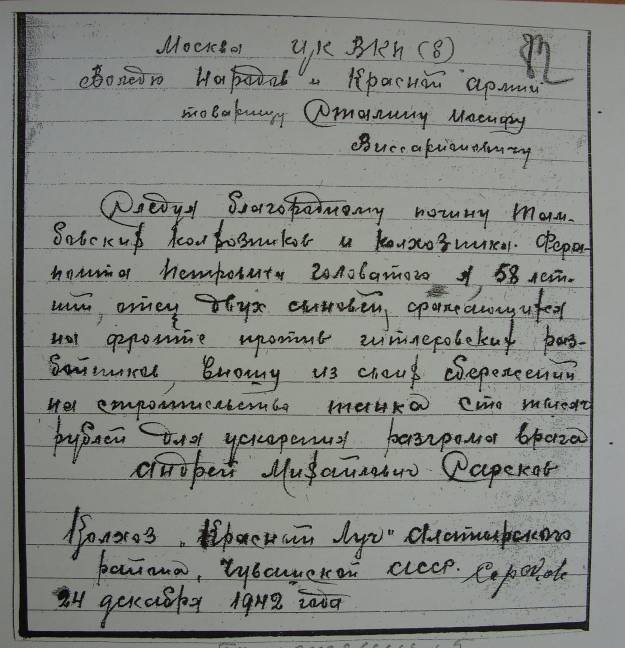 Москва ЦК ВКП(б)
Вождю Народов и Красной армии
товарищу Сталину Иосифу
Виссарионовичу
Следуя благородному почину Там-
бовских колхозников и колхозника Фера-
понта Петровича Головатого я, 58 лет-
ний, отец двух сыновей, сражающихся
на фронте против гитлеровских раз-
бойников, вношу из своих сбережений
на строительство танка сто тысяч
рублей для ускорения разгрома врага
Андрей Михайлович Сарсков
Колхоз „Красный Луч" Алатырского
района, Чувашской АССР.
24 декабря 1942 года